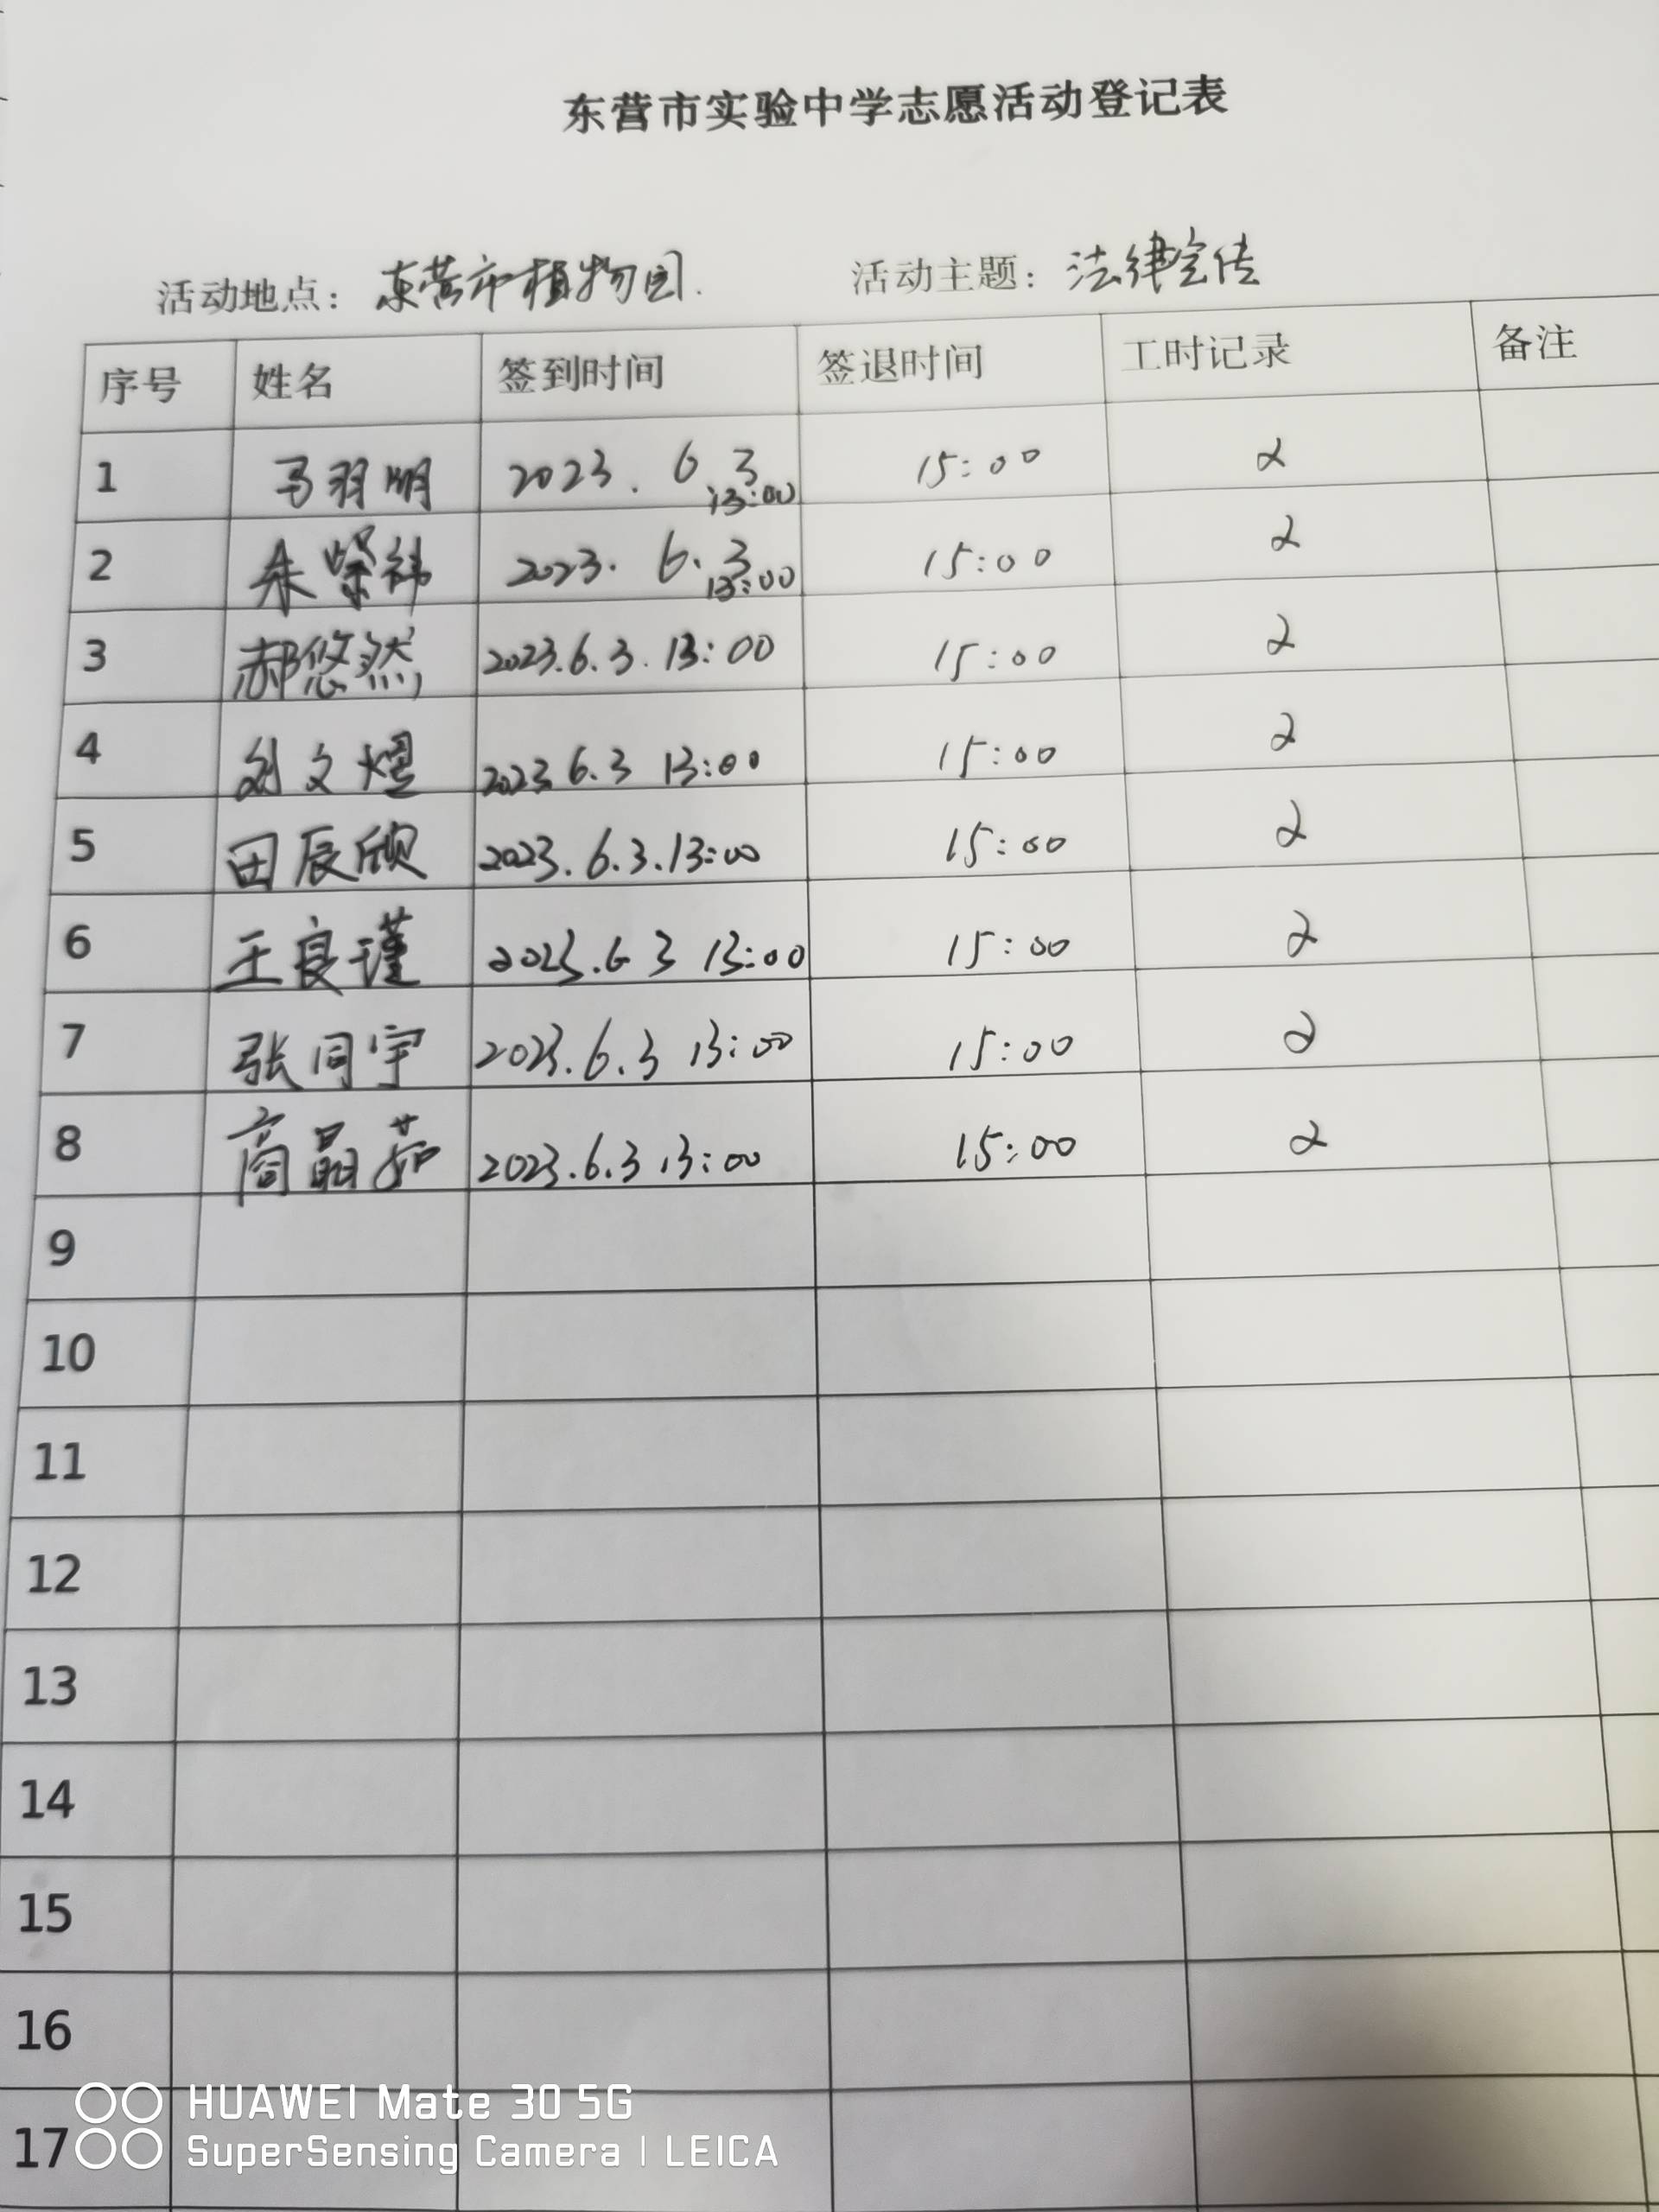 东营市实验中学志愿活动登记表
活动地点：东营市植物园. 活动主题：法律宣传
序号 姓名 签到时间 签退时间 工时记录 备注
1 马羽明 2023.6.3 13:00 15:00 2
2 朱 祎 2023.6.3 13:00 15:00 2
3 郝悠然 2023.6.3.13:00 15:00 2
4 刘文煜 2023 6.3 13:00 15:00 2
5 田辰欣 2023.6.3.13:00 15:00 2
6 王良瑾 2023.6 3 13:00 15:00 2
7 张同宇 2023.6.3 13:00 15:00 2
8 商晶茹 2023.6.3 13:00 15:00 2
9
10
11
12
13
14
15
16
17
HUAWEI Mate 30 5G
SuperSensing Camera | LEICA